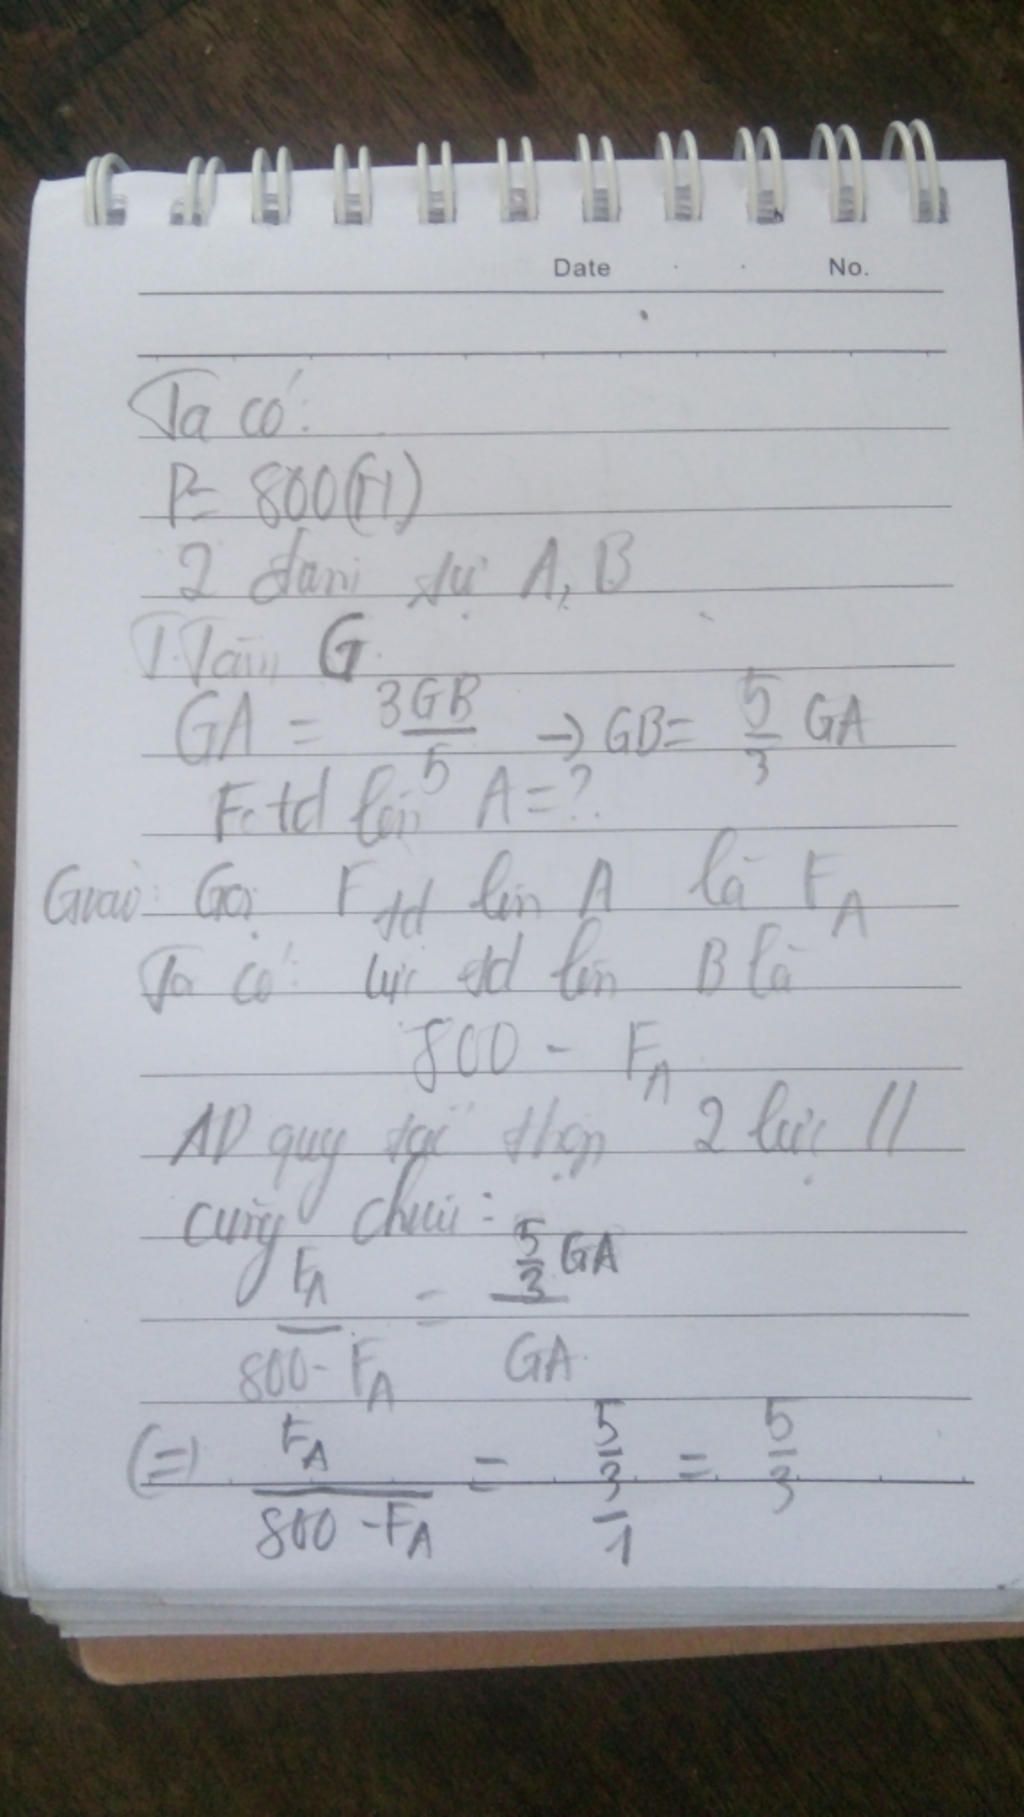 Date . . No.
Ta có:
P = 800(N)
2 điểm tựa A, B
T.Tâm G
GA = 3GB/5 → GB = 5/3 GA
F td lên A = ?
Giải: Gọi F td lên A là F_A
Ta có: lực td lên B là
800 - F_A
AD quy tắc 2 lực //
cùng chiều:
F_A/800 - F_A = 5/3 GA/GA
(=) F_A/800 - F_A = 5/3/1 = 5/3